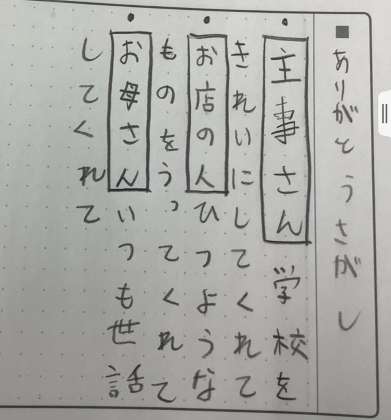 ■ ありがとうさがし
・主事さん 学校を
きれいにしてくれて
・お店の人 ひつような
ものをうってくれて
・お母さん いつも世話
してくれて